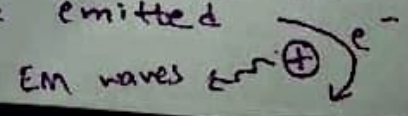 : emitted
e⁻
EM waves ⊕